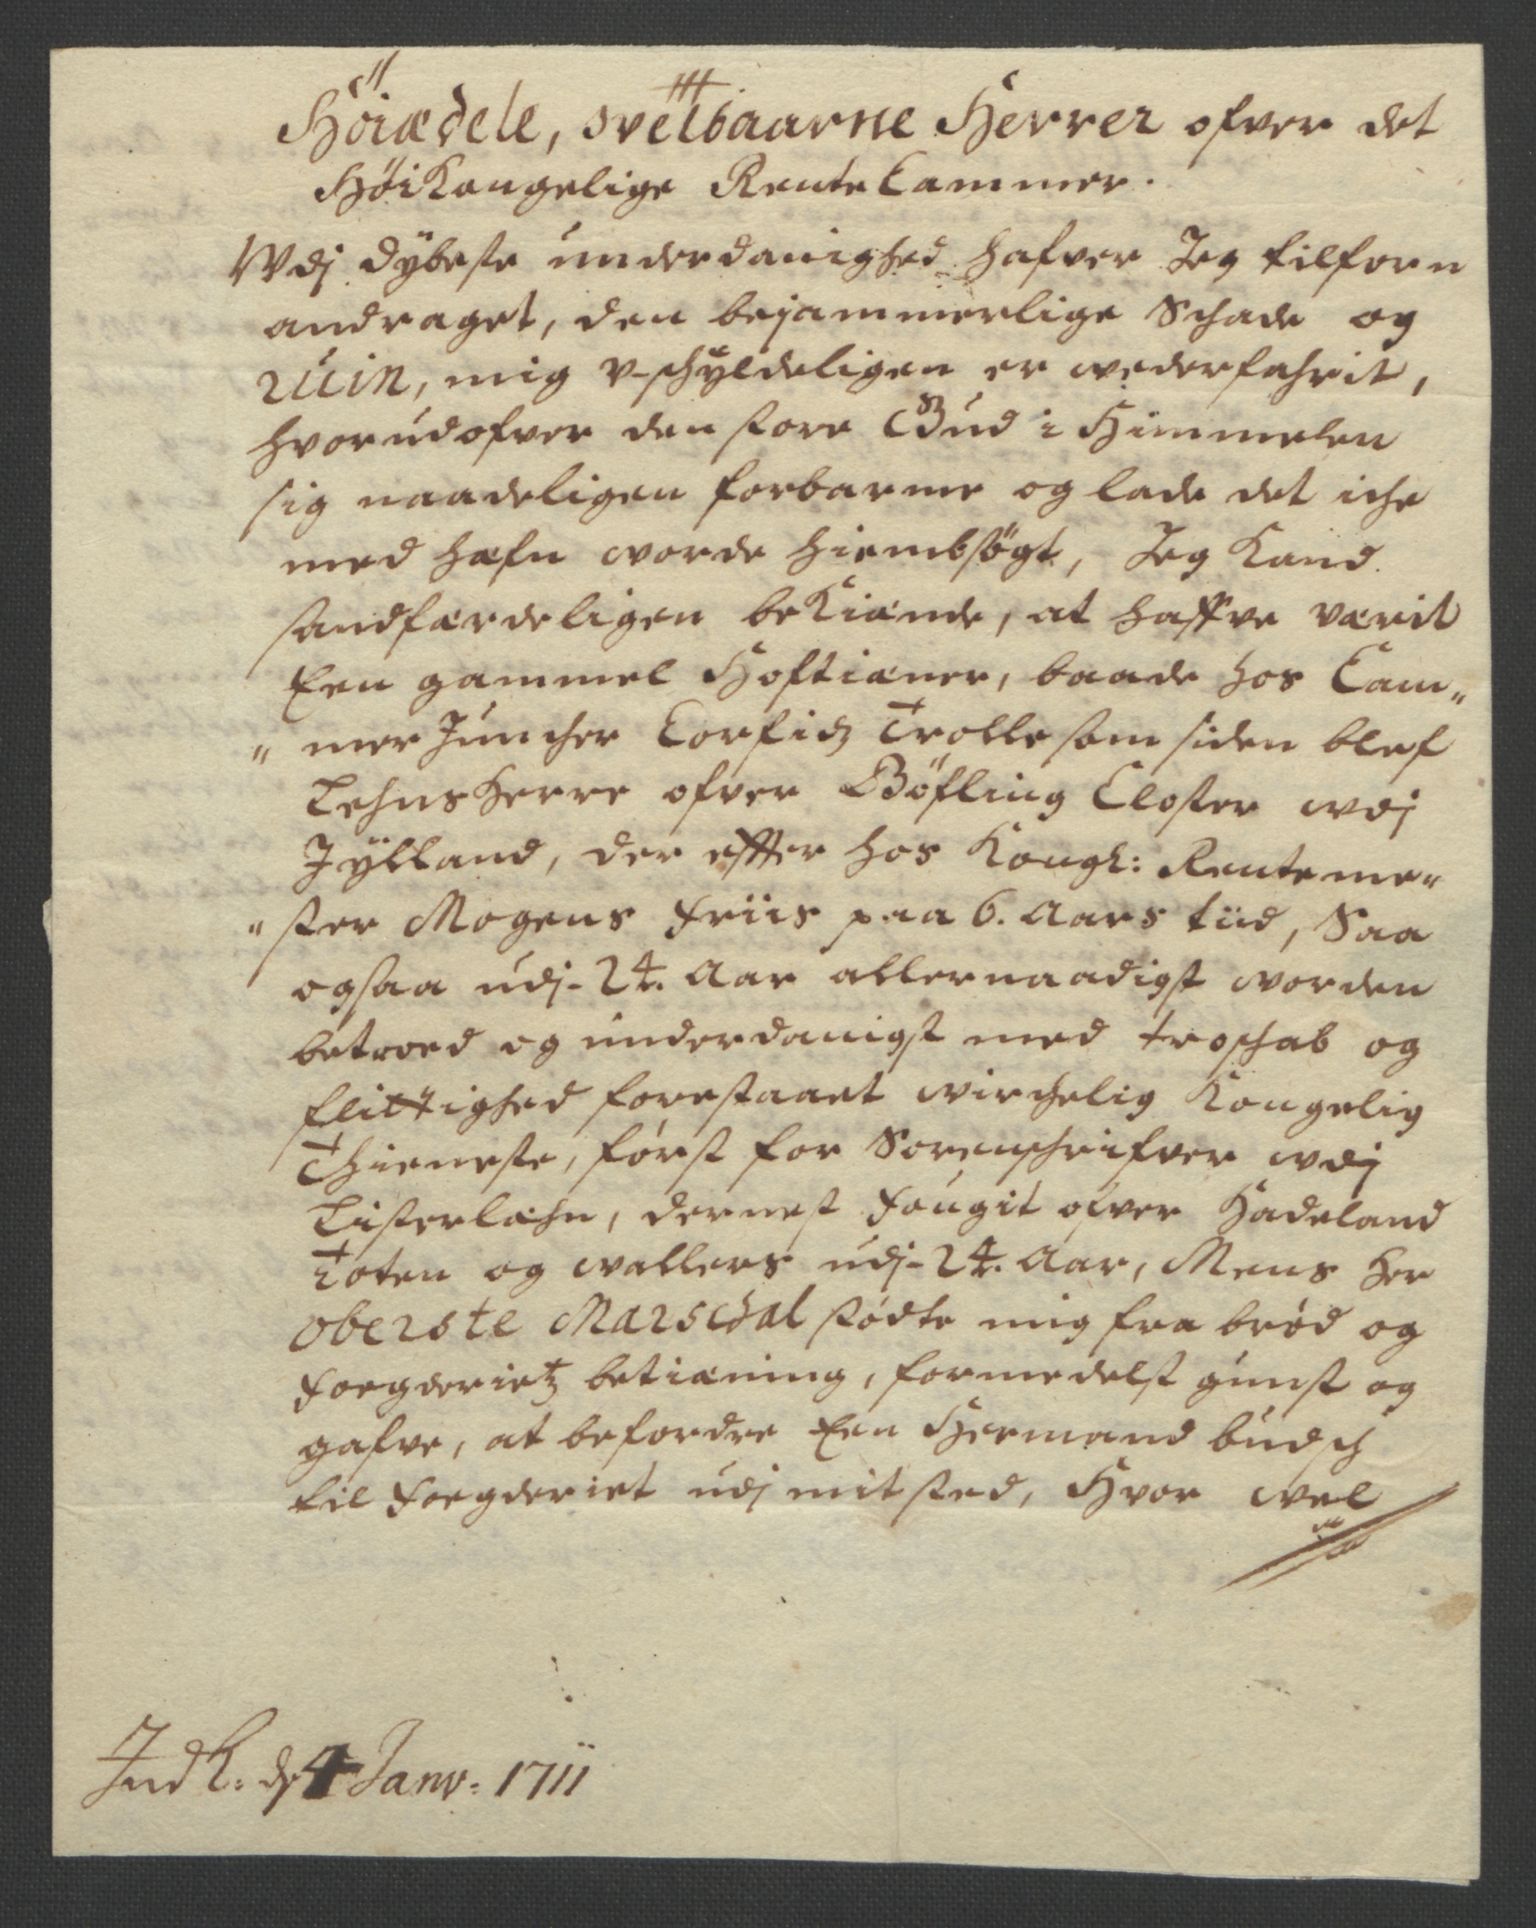 Höiædele, velbaarne Herrer ofver det
Höi Kongelige Rente Cammer.
Wdj dÿbeste underdanighed hafver Jeg tilforn
andraget, den bejammerlige Schade og
ruin, mig v-schÿldeligen er wederfahrit,
hvorudofver den store Gud i Himmelen
sig naadeligen forbarme og lade det iche
med hæfn worde hiembsögt, Jeg Kand
sandfærdeligen beKiænde, at haffve værit
Een gammel Hoftiæner, baade hos Cam"
"mer Juncher Corfidz Trolle som siden blef
Lehns Herre ofver Böfling Closter wdj
Jÿlland, der effter hos Kongl: Renteme"
"ster Mogens Friis paa 6. Aars tiid, Saa
ogsaa udj-24. Aar allernaadigst worden
betroed og underdanigst med troschab og
flittighed forestaaet wirchelig Kongelig
Thieneste, først for Sorenschrifver wdj
Listerlæhn, dernest Fougit ofver Hadeland
Toten og wallers udj-24. Aar, Mens Her
Oberste Marschal stødte mig fra brød og
Foegderietz betiæning, formedelst gunst og
gafve, at befordre Een Hermand budsch
til Foegderiet udj mit sted, Hvor wel
Ind L: d 4 Janv: 1711